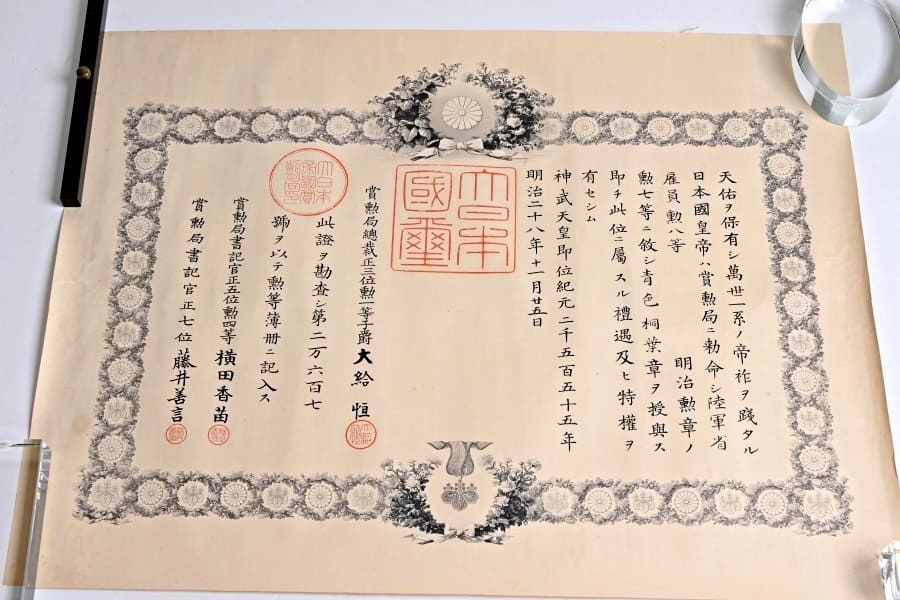 天佑ヲ保有シ萬世一系ノ帝祚ヲ踐タル
日本國皇帝ハ賞勲局ニ勅命シ陸軍省
雇員勲八等 明治勲章ノ
勲七等ニ敘シ青色桐葉章ヲ授與ス
即チ此位ニ屬スル禮遇及ヒ特權ヲ
有セシム
神武天皇即位紀元二千五百五十五年
明治二十八年十一月廿五日
大日本
國璽
賞勲局總裁正三位勲一等子爵大給 恒
此證ヲ勘査シ第二万六百七
號ヲ以テ勲等簿冊ニ記入ス
賞勲局書記官正五位勲四等橫田香苗
賞勲局書記官正七位藤井善言